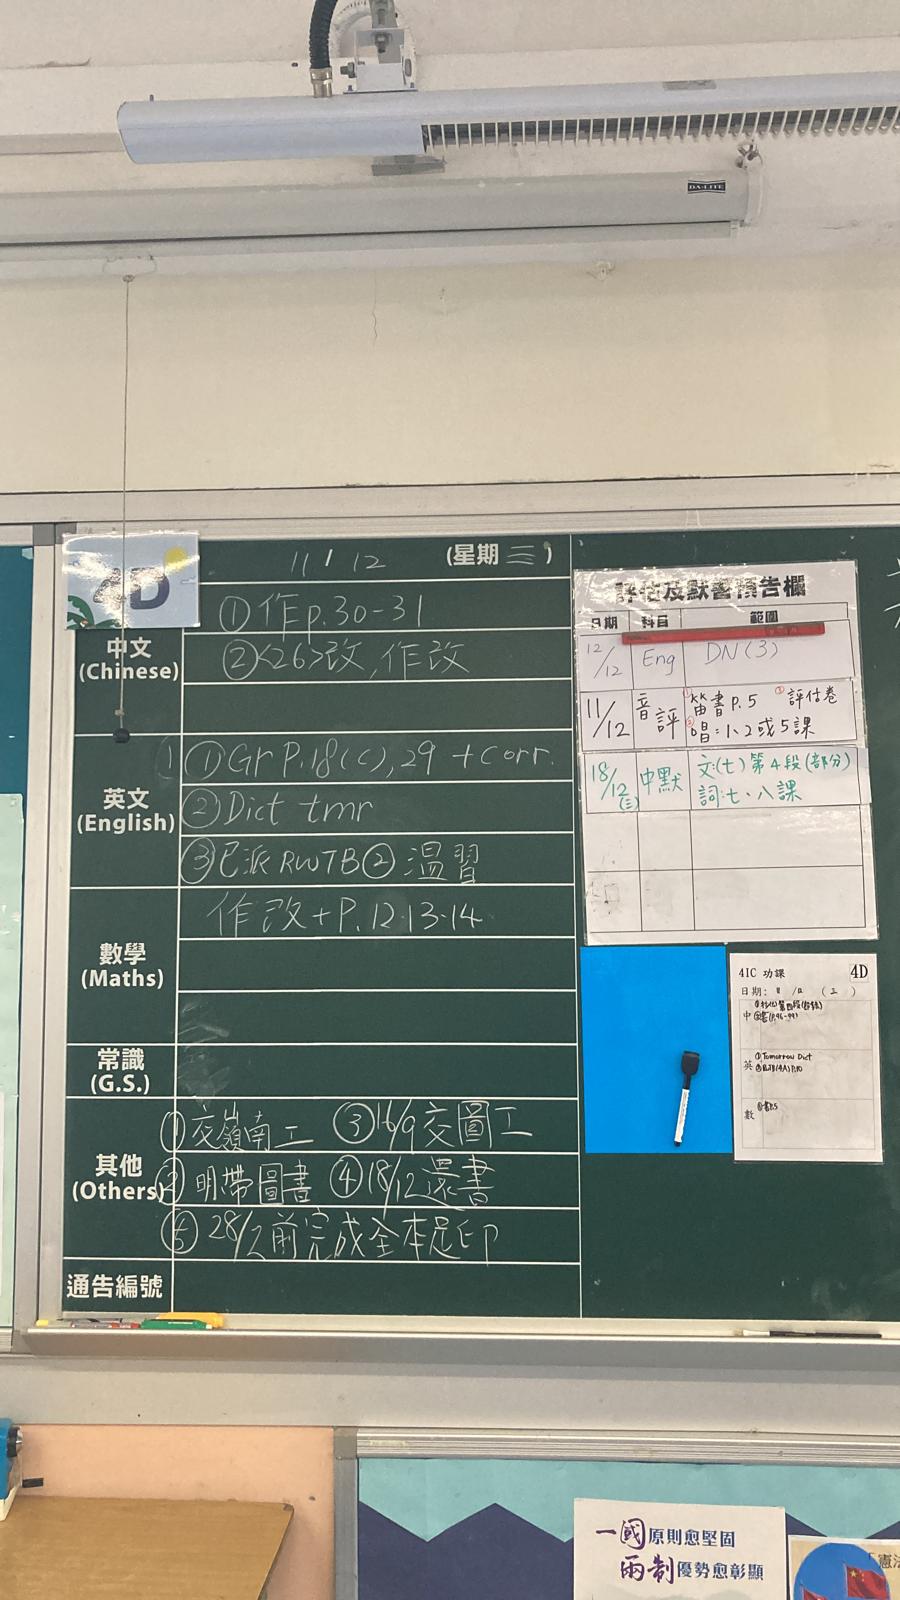 DA-LITE
4D
11 / 12 (星期三)
中文
(Chinese)
①作p.30-31
②<26>改,作改
英文
(English)
①Gr P.18(c),29 + corr.
②Dict tmr
③已派 RWTB② 溫習
數學
(Maths)
作改+P.12.13.14
常識
(G.S.)
其他
(Others)
①交嶺南工 ③16/9交圖工
②明帶圖書 ④18/12還書
⑤28/2前完成全本足印
通告編號
評估及默書預告欄
日期 科目 範圍
12/12 Eng DN(3)
11/12 音評 ①笛書P.5 ③評估卷
②唱:1、2或5課
18/12(三) 中默 文:(七)第4段(部分)
詞:七、八課
4IC 功課 4D
日期: 11 /12 (三)
中
英 ①Tomorrow Dict
數 ①書P.5
一國原則愈堅固
兩制優勢愈彰顯